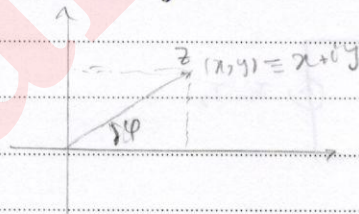 z (x,y) ≡ x+iy
φ